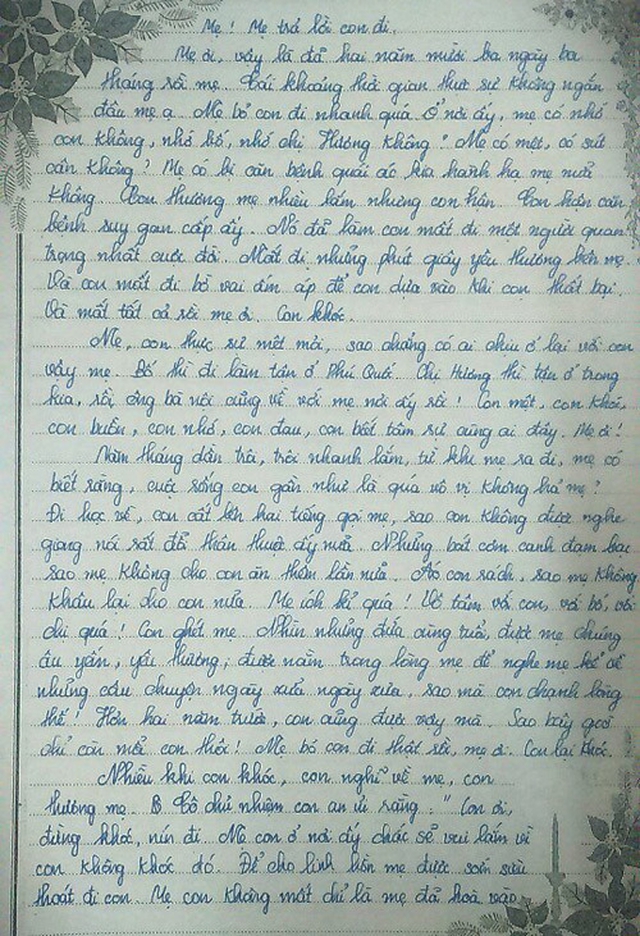 Mẹ! Mẹ trả lời con đi.
Mẹ ơi, vậy là đã hai năm mười ba ngày ba
tháng rồi mẹ. Cái khoảng thời gian thực sự không ngắn
đâu mẹ ạ. Mẹ bỏ con đi nhanh quá. Ở nơi ấy, mẹ có nhớ
con không, nhớ bố, nhớ chị Hương không? Mẹ có mệt, có sút
cân không? Mẹ có bị căn bệnh quái ác kia hành hạ mẹ nữa
không. Con thương mẹ nhiều lắm nhưng con hận. Con hận căn
bệnh suy gan cấp ấy. Nó đã làm con mất đi một người quan
trọng nhất cuộc đời. Mất đi những phút giây yêu thương bên mẹ.
Và con mất đi bờ vai ấm áp để con dựa vào khi con thất bại.
Và mất tất cả rồi mẹ ơi. Con khóc.
Mẹ, con thực sự mệt mỏi, sao chẳng có ai chịu ở lại với con
vậy mẹ. Bố thì đi làm tận ở Phú Quốc. Chị Hương thì tận ở trong
kia, rồi ông bà nội cũng về với mẹ nơi ấy rồi! Con mệt, con khóc,
con buồn, con nhớ, con đau, con biết tâm sự cùng ai đây. Mẹ ơi!
Năm tháng dần trôi, trôi nhanh lắm, từ khi mẹ ra đi, mẹ có
biết rằng, cuộc sống con gần như là quá vô vị không hả mẹ?
Đi học về, con cất lên hai tiếng gọi mẹ, sao con không được nghe
giọng nói rất đỗi thân thuộc ấy nữa. Những bát cơm canh đạm bạc
sao mẹ không cho con ăn thêm lần nữa. Áo con rách, sao mẹ không
khâu lại cho con nữa. Mẹ ích kỉ quá! Vô tâm với con, với bố, với
chị quá! Con ghét mẹ. Nhìn những đứa cùng tuổi, được mẹ chúng
âu yếm, yêu thương, được nằm trong lòng mẹ để nghe mẹ kể về
những câu chuyện ngày xửa ngày xưa, sao mà con chạnh lòng
thế! Hơn hai năm trước, con cũng được vậy mà. Sao bây giờ
chỉ còn mỗi con thôi! Mẹ bỏ con đi thật rồi, mẹ ơi. Con lại khóc.
Nhiều khi con khóc, con nghĩ về mẹ, con
thương mẹ. Cô chủ nhiệm con an ủi rằng: "Con ơi,
đừng khóc, nín đi. Mẹ con ở nơi ấy chắc sẽ vui lắm vì
con không khóc đó. Để cho linh hồn mẹ được sớm siêu
thoát đi con. Mẹ con không mất chỉ là mẹ đã hoà vào